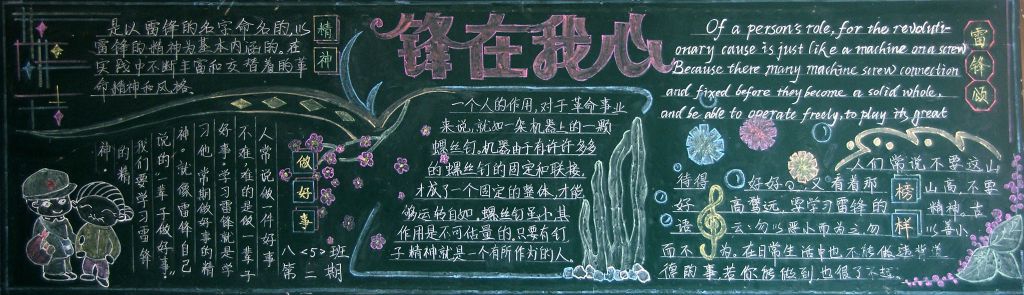 锋在我心
是以雷锋的名字命名的,以
雷锋的精神为基本内涵的,在
实践中不断丰富和发替着的革
命精神和风格。
精神
人常说做一件好事
不难,难的是做一辈子
好事。学习雷锋就是学
习他常期做好事的精
神。就像雷锋自己
说的“一辈子做好事”
我们要学习雷锋
的精
神。
做好事
八<5>班
第二期
一个人的作用,对于革命事业
来说,就如一架机器上的一颗
螺丝钉。机器由于有许许多多
的螺丝钉的固定和联接,
才成了一个固定的整体,才能
够运的自如,螺丝钉虽小,其
作用是不可估量的,只要有钉
子精神就是一个有所作为的人。
Of a person's role, for the revoluti-
onary cause is just like a machine on a screw
Because there many machine screw connection
and fixed before they become a solid whole,
and be able to operate freely, to play its great
雷锋颂
人们常说不要这山
待得好好,又看着那山高,不要
好高骛远,要学习雷锋的精神。古
语云:勿以恶小而为之,勿以善小
而不为。在日常生活中也不能做违背道
德的事若你能做到也很了不起。
榜样